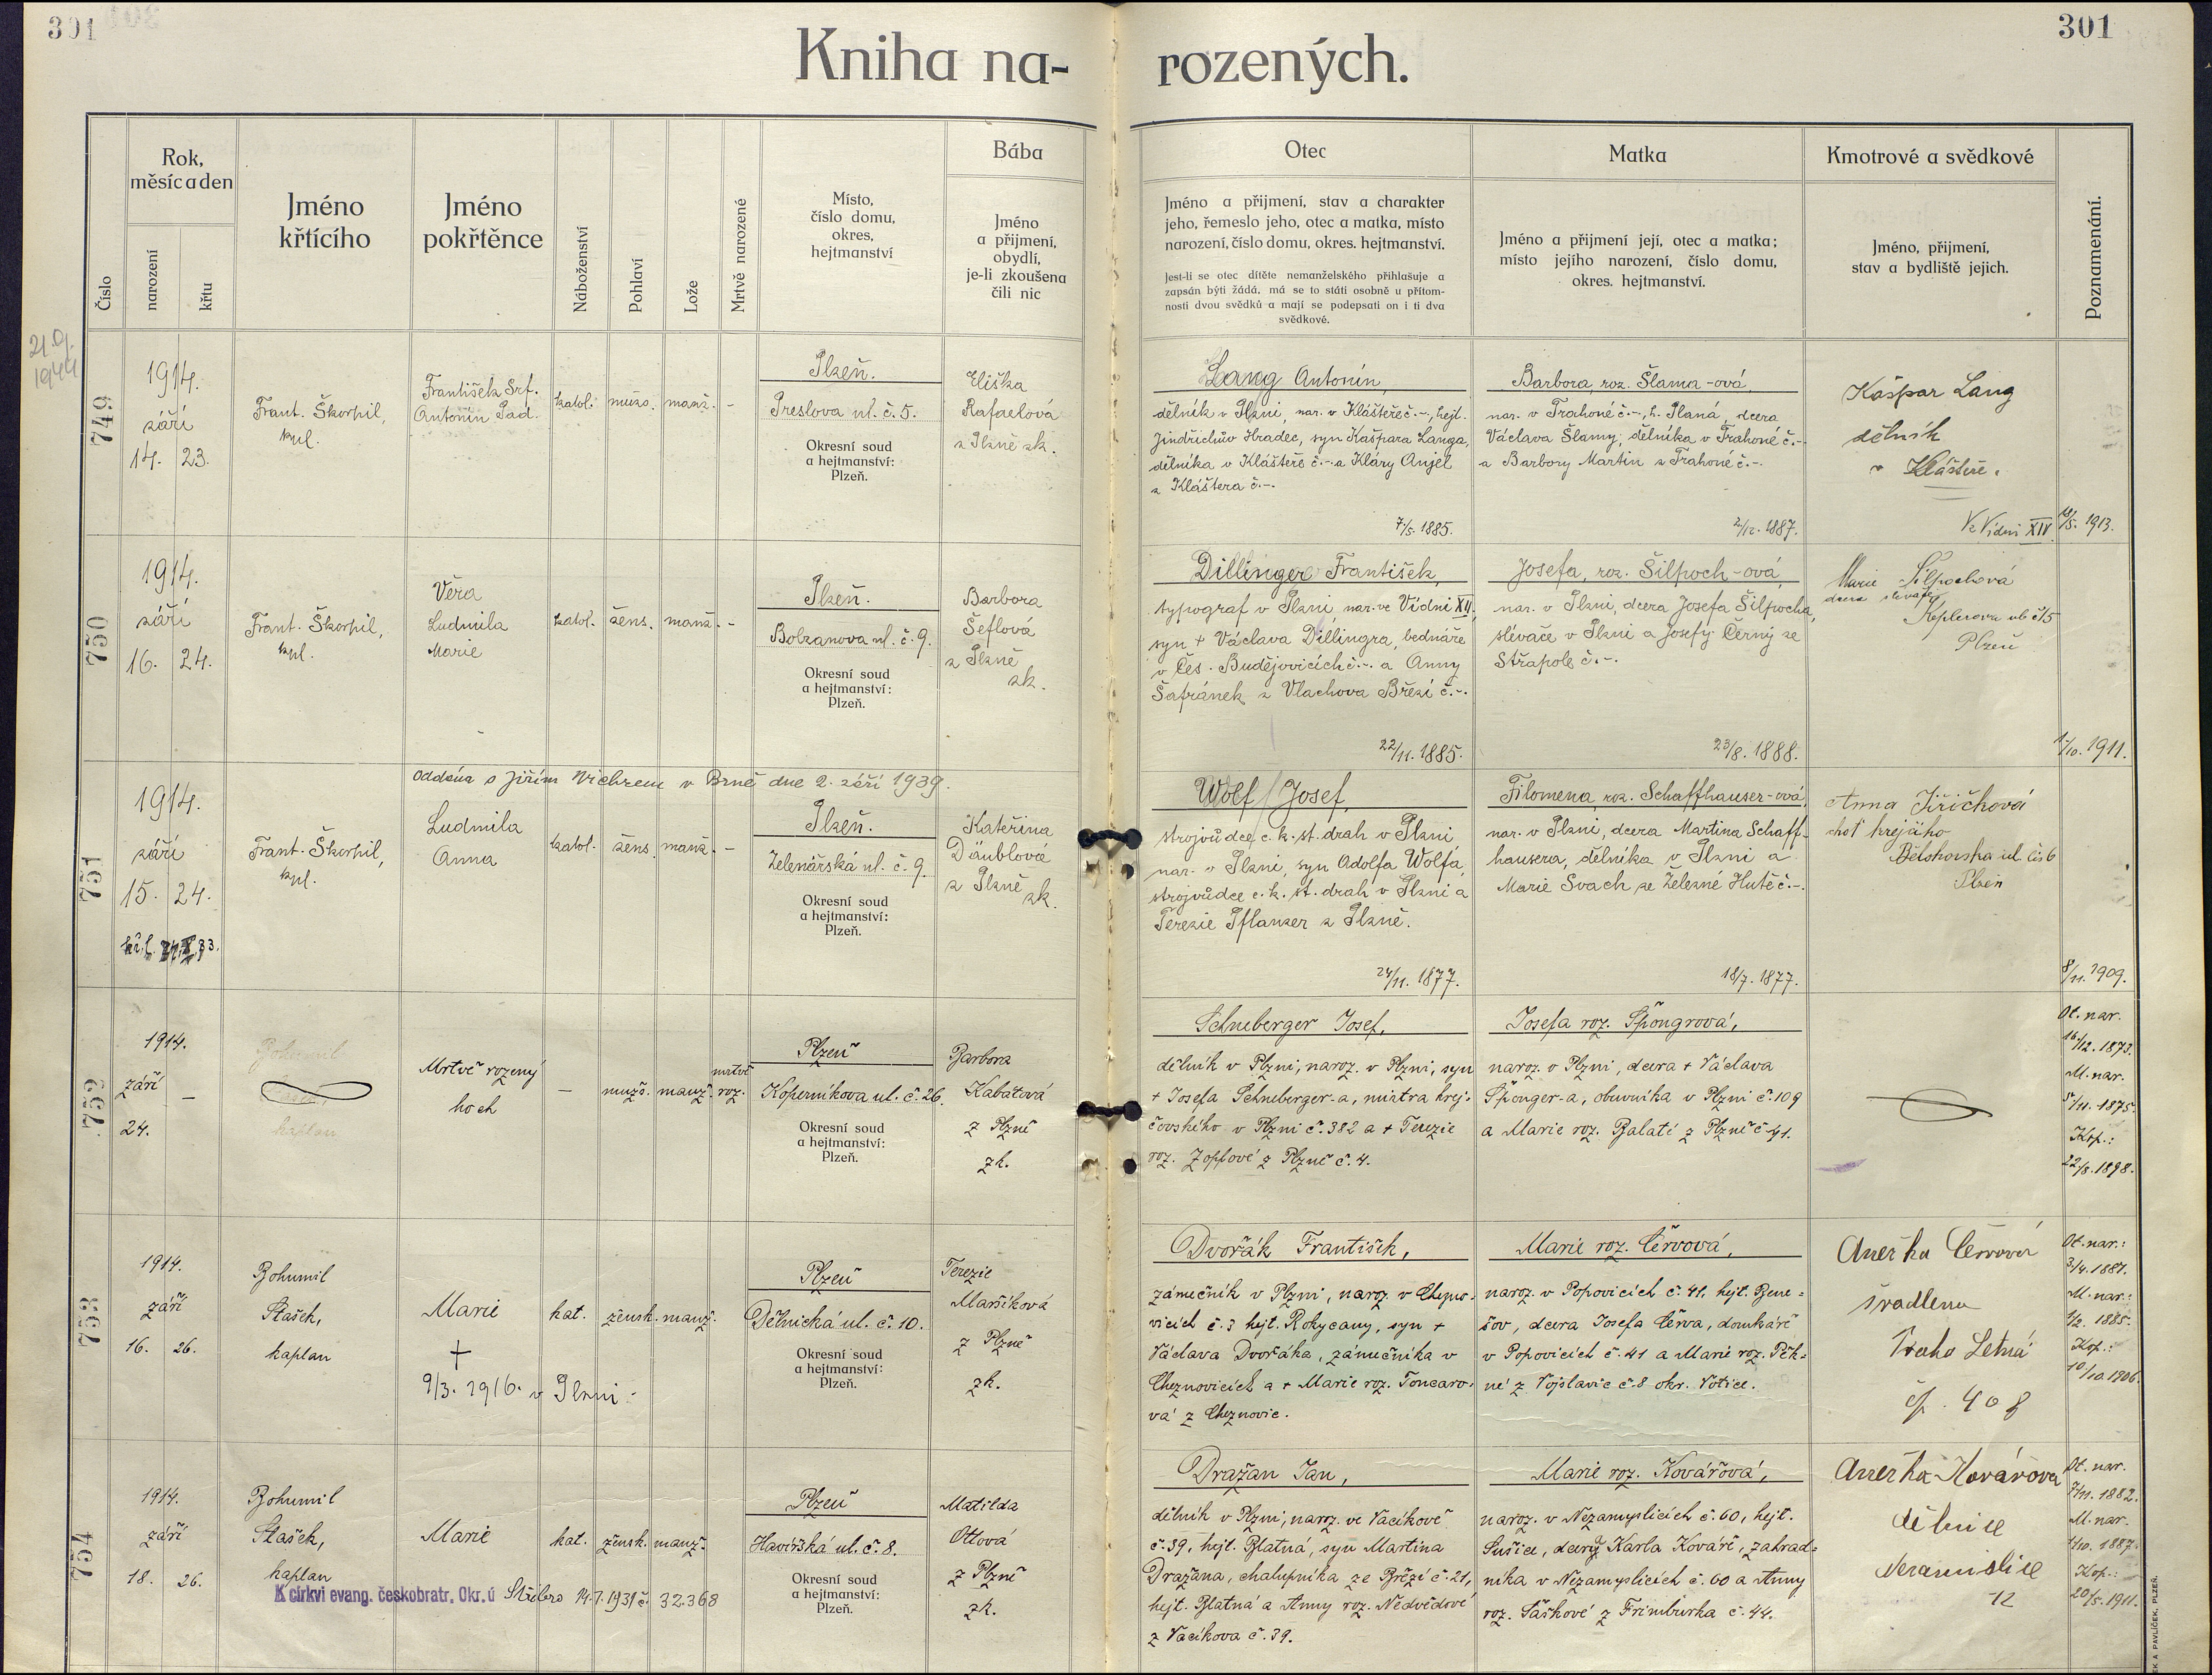 301
301
Kniha na-rozených.
Číslo
Rok, měsíc a den
narození
křtu
Jméno křtícího
Jméno pokřtěnce
Náboženství
Pohlaví
Lože
Mrtvě narozené
Místo, číslo domu, okres, hejtmanství
Bába
Jméno a přijmení, obydlí, je-li zkoušena čili nic
Otec
Jméno a přijmení, stav a charakter
jeho, řemeslo jeho, otec a matka, místo
narození, číslo domu, okres. hejtmanství.
Jest-li se otec dítěte nemanželského přihlašuje a
zapsán býti žádá, má se to státi osobně u přítom-
nosti dvou svědků a mají se podepsati on i ti dva
svědkové.
Matka
Jméno a přijmení její, otec a matka;
místo jejího narození, číslo domu,
okres. hejtmanství.
Kmotrové a svědkové
Jméno, přijmení,
stav a bydliště jejich.
Poznamenání.
1944
749
1914.
září
14. 23.
Frant. Škorpil,
kpl.
František Srf.
Antonín Pad.
katol.
mužs.
manž.
-
Plzeň.
Preslova ul. č. 5.
Okresní soud
a hejtmanství:
Plzeň.
Eliška
Rafaelová
z Plzně zk.
Lang Antonín,
dělník v Plzni, nar. v Klášteře č.-, hejt.
Jindřichův Hradec, syn Kašpara Langa,
dělníka v Klášteře č.- a Kláry Anjel
z Kláštera č.-.
7/5. 1885.
Barbora, roz. Šlama-ová,
nar. v Trahoné č.-, h. Planá, dcera
Václava Šlamy, dělníka v Trahoné č.-
a Barbory Martin z Trahoné č.-.
2/12. 1887.
Kašpar Lang
dělník
v Klášteře.
Ve Vídni XIV
18/5. 1913.
750
1914.
září
16. 24.
Frant. Škorpil,
kpl.
Věra
Ludmila
Marie
katol.
žens.
manž.
-
Plzeň.
Bolzanova ul. č. 9.
Okresní soud
a hejtmanství:
Plzeň.
Barbora
Šeflová
z Plzně
zk.
Dillinger František,
typograf v Plzni, nar. ve Vídni XII,
syn + Václava Dillingra, bednáře
v Čes. Budějovicích č.-. a Anny
Šafránek z Vlachova Březí č.-.
22/11. 1885.
Josefa, roz. Šilpoch-ová,
nar. v Plzni, dcera Josefa Šilpocha,
slévače v Plzni a Josefy Černý ze
Střapole č.-.
23/8. 1888.
Marie Šilpochová
dcera slévače
Keplerova ul. č. 15
Plzeň
1/10. 1911.
751
Oddána s Jiřím Vichrem v Brně dne 2. září 1939.
1914.
září
15. 24.
Frant. Škorpil,
kpl.
Ludmila
Anna
katol.
žens.
manž.
-
Plzeň.
Zelenářská ul. č. 9.
Okresní soud
a hejtmanství:
Plzeň.
Kateřina
Däublová
z Plzně
zk.
Wolf Josef,
strojvůdce c. k. st. drah v Plzni
nar. v Plzni, syn Adolfa Wolfa,
strojvůdce c. k. st. drah v Plzni a
Terezie Pflanzer z Plzně.
24/11. 1877.
Filomena, roz. Schaffhauser-ová,
nar. v Plzni, dcera Martina Schaff-
hausera, dělníka v Plzni a
Marie Svach ze Železné Hutě č.-.
18/7. 1877.
Anna Jiřičková
choť krejčího
Bělohorská ul. čís 6
Plzeň
8/11. 1909.
752
1914.
září
24.
-
Bohumil
kaplan
Mrtvě rozený
hoch
-
mužs.
manž.
mrtvě
roz.
Plzeň
Koperníkova ul. č. 26.
Okresní soud
a hejtmanství:
Plzeň.
Barbora
Kabátová
z Plzně
zk.
Schneberger Josef,
dělník v Plzni, naroz. v Plzni, syn
+ Josefa Schneberger-a, mistra krej-
čovského v Plzni č. 382 a + Terezie
roz. Zopfové z Plzně č. 4.
Josefa roz. Špöngrová,
naroz. v Plzni, dcera + Václava
Špönger-a, obuvníka v Plzni č. 109
a Marie roz. Balaté z Plzně č. 41.
Ot. nar.
16/12. 1873.
M. nar.
5/11. 1875.
Kop.:
22/8. 1898.
753
1914.
září
16. 26.
Bohumil
Stašek,
kaplan
Marie
+
9/3. 1916. v Plzni.
kat.
žensk.
manž.
Plzeň
Dělnická ul. č. 10.
Okresní soud
a hejtmanství:
Plzeň.
Terezie
Maršíková
z Plzně
zk.
Dvořák František,
zámečník v Plzni, naroz. v Chezno-
vicích č. 3 hejt. Rokycany, syn +
Václava Dvořáka, zámečníka v
Cheznovicích a + Marie roz. Toncaro-
vá z Cheznovic.
Marie roz. Červová,
naroz. v Popovicích č. 41, hejt. Bene-
šov, dcera Josefa Červa, domkáře
v Popovicích č. 41 a Marie roz. Pěk-
né z Vojslavic č. 8 okr. Votice.
Anežka Červová
švadlena
Praha Letná
čp. 408
Ot. nar.:
3/4. 1887.
M. nar.:
9/2. 1885.
Kop.:
10/10. 1906.
754
1914.
září
18. 26.
Bohumil
Stašek,
kaplan
K církvi evang. českobratr. Okr. ú Stříbro 14.7.1931 č. 32.368
Marie
kat.
žensk.
manž.
Plzeň
Havířská ul. č. 8.
Okresní soud
a hejtmanství:
Plzeň.
Matilda
Ottová
z Plzně
zk.
Dražan Jan,
dělník v Plzni, naroz. ve Vacíkově
č. 39, hejt. Blatná, syn Martina
Dražana, chalupníka ze Březí č. 21,
hejt. Blatná a Anny roz. Nedvědové
z Vacíkova č. 39.
Marie roz. Kovářová,
naroz. v Nezamyslicích č. 60, hejt.
Sušice, dcery Karla Kováře, zahrad-
níka v Nezamyslicích č. 60 a Anny
roz. Šaškové z Frimburka č. 44.
Anežka Kovářova
dělnice
Nezamislice
12
Ot. nar.
7/11. 1882.
M. nar.
1/10. 1887.
Kop.:
20/5. 1911.